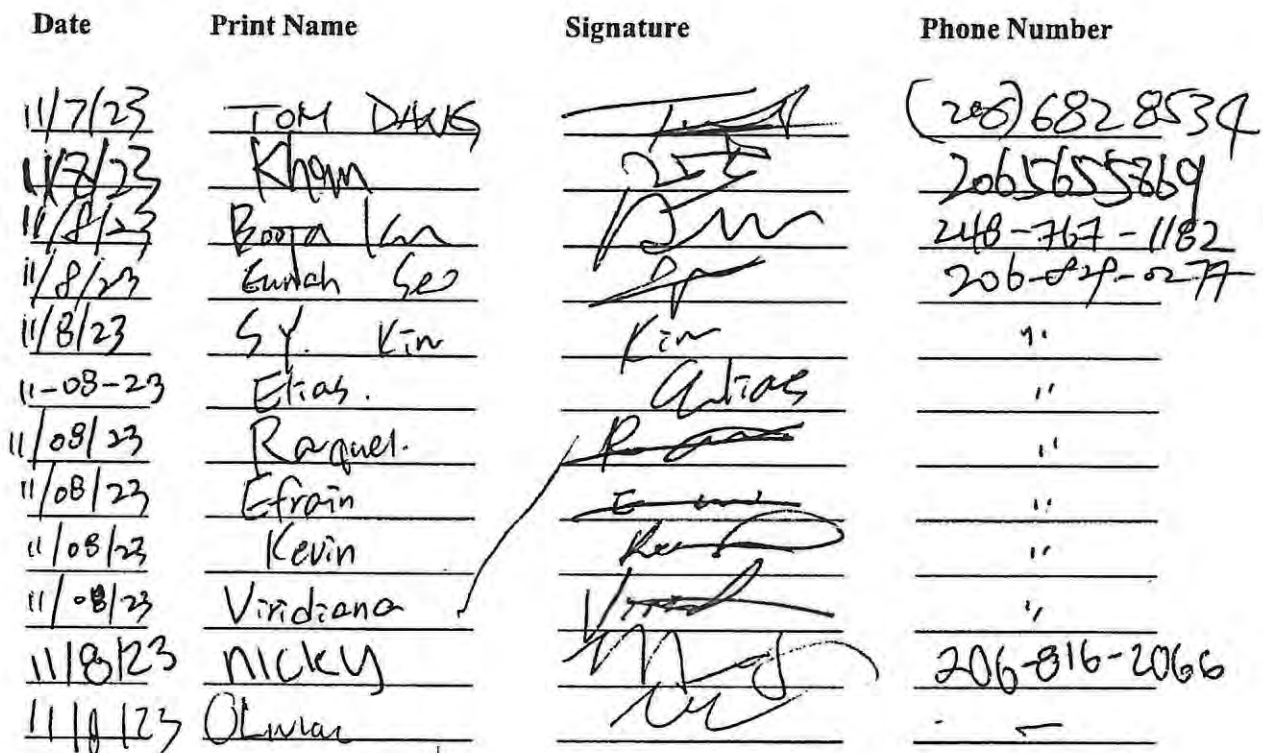 Date Print Name Signature Phone Number
11/7/23 TOM (206) 682 8534
11/8/23 Kham 2065655869
11/8/23 248-767-1182
11/8/23 Seo
11/8/23 S.Y. Kim Kim "
11-08-23 Elias. Elias "
11/08/23 Raquel. "
11/08/23 Efrain "
11/08/23 Kevin "
11/08/23 Viridiana "
11/8/23 NICKY 206-816-2066
11/8/23 -